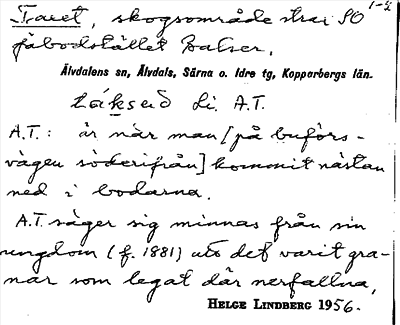 1-2
Taret, skogsområde strax SO
fäbodstället Balser.
Älvdalens sn, Älvdals, Särna o. Idre tg, Kopparbergs län.
A.T.
A.T.: är när man [på buförs-
vägen söderifrån] kommit nästan
ned i bodarna.
A.T. säger sig minnas från sin
ungdom (f. 1881) att det varit gra-
nar som legat där nerfallna,
HELGE LINDBERG 1956.